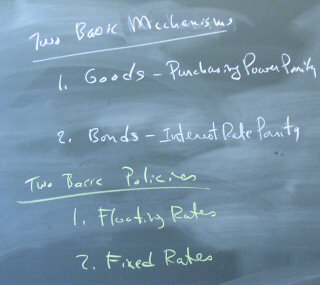 Two Basic Mechanisms
1. Goods - Purchasing Power Parity
2. Bonds - Interest Rate Parity
Two Basic Policies
1. Floating Rates
2. Fixed Rates